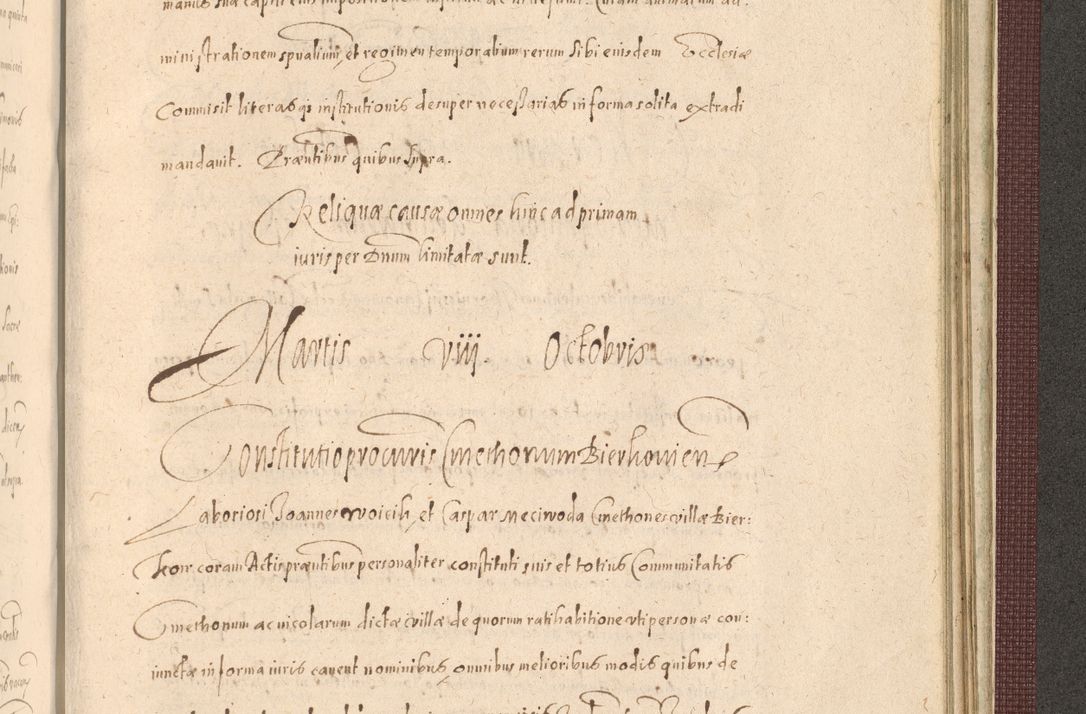 ministrationem spualium, et regimen temporalium rerum sibi eiusdem Ecclesiæ
Commisit literasqȝ institutionis desuper necessarias in forma solita extradi
mandauit. Præntibus quibus supra.
Reliquæ causæ omnes hinc ad primam
iuris per Dnum limitatæ sunt.
Martis viii Octobris
Constitutio procuris Cmethonum Bierkouien
Laboriosi Joannes woicik, et Caspar Meciwoda Cmethones villæ Bier:
kow coram Actis præntibus personaliter constituti suis et totius Communitatis
Cmethonum ac incolarum dictæ villæ de quorum ratihabitione vti personæ con:
iunctæ in forma iuris cauent nominibus, omnibus melioribus modis quibus de